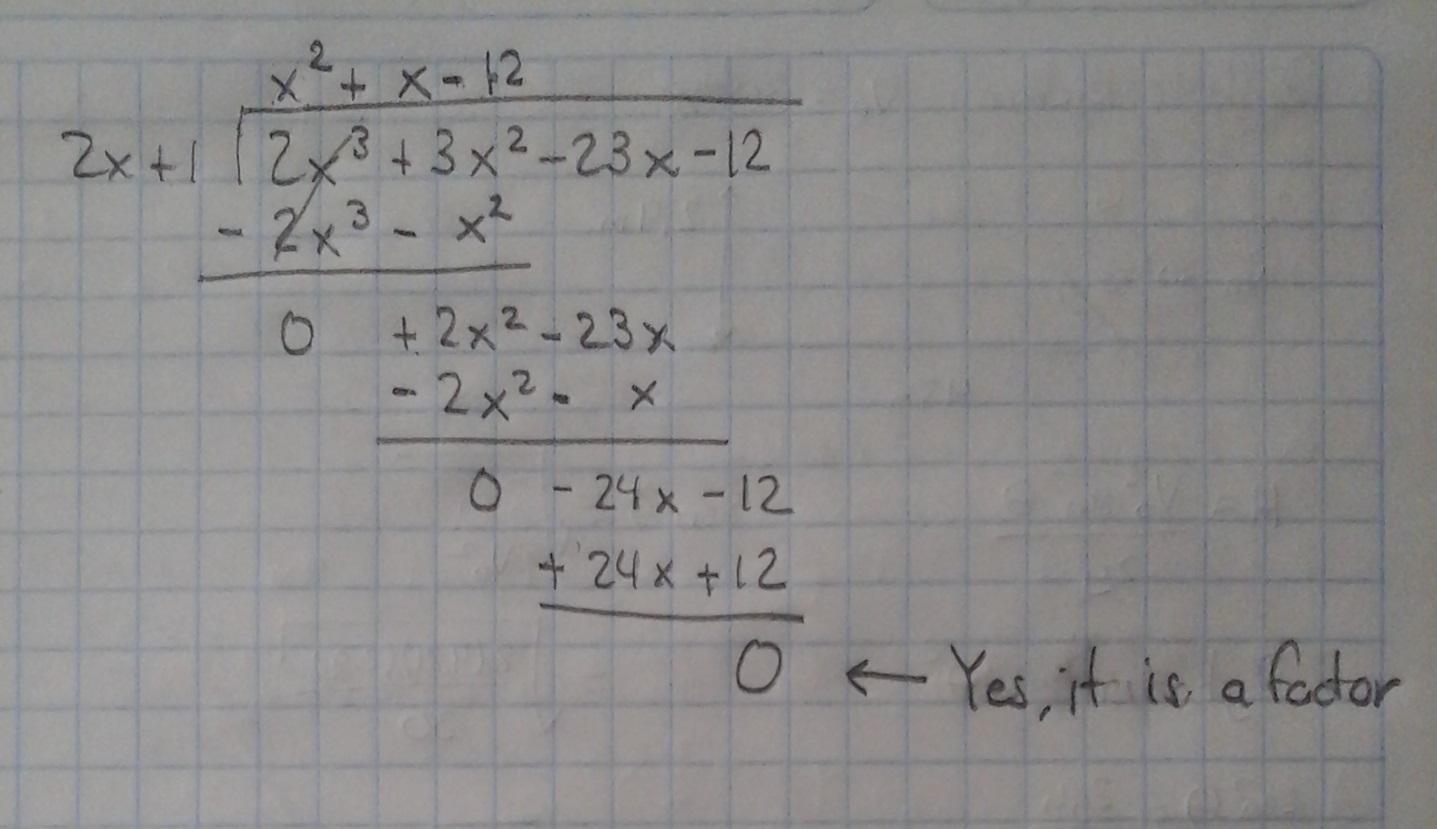 x² + x - 12
2x + 1 2x³ + 3x² - 23x - 12
- 2x³ - x²
0 + 2x² - 23x
- 2x² - x
0 - 24x - 12
+ 24x + 12
0 ← Yes, it is a factor